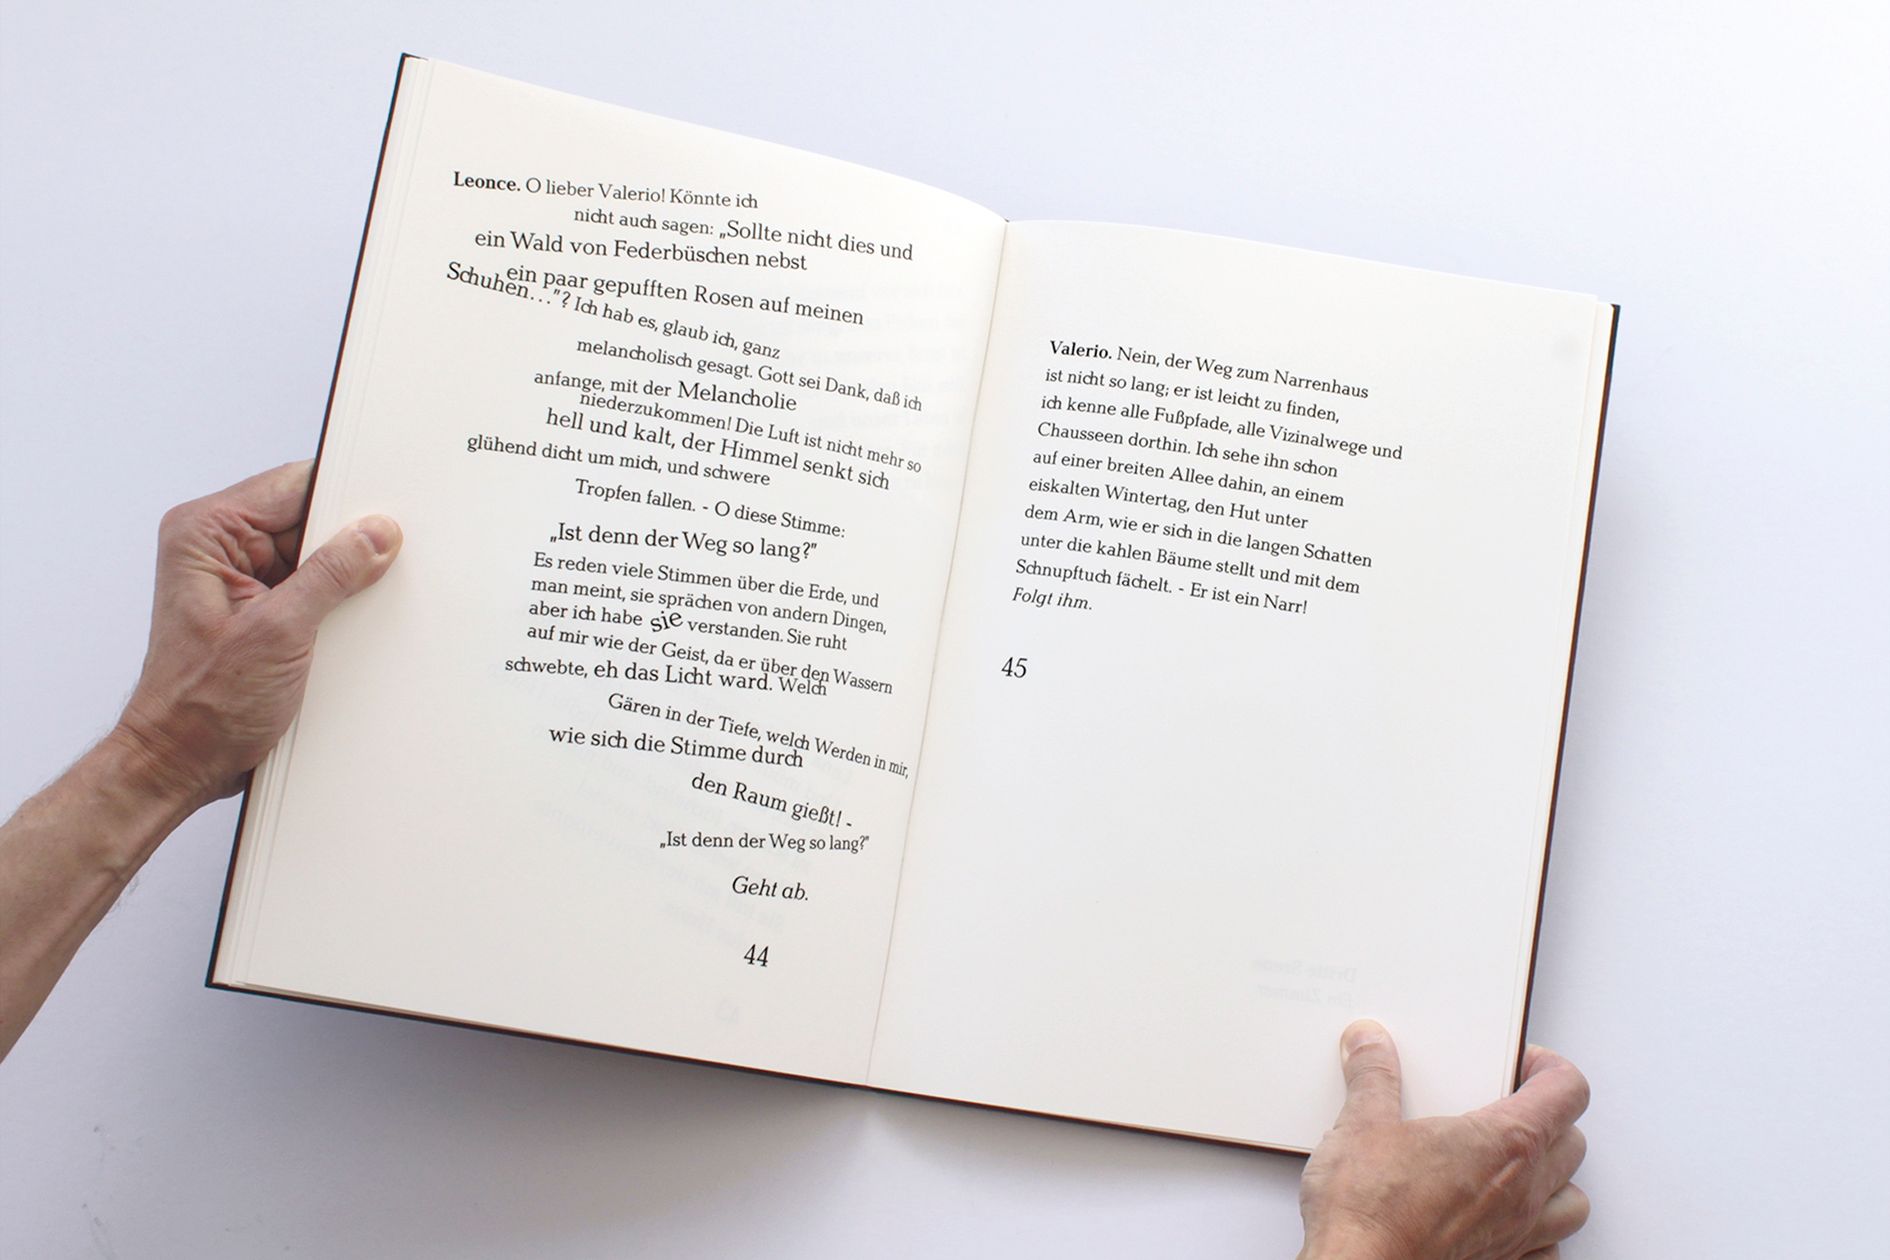 Leonce. O lieber Valerio! Könnte ich
nicht auch sagen: „Sollte nicht dies und
ein Wald von Federbüschen nebst
ein paar gepufften Rosen auf meinen
Schuhen…”? Ich hab es, glaub ich, ganz
melancholisch gesagt. Gott sei Dank, daß ich
anfange, mit der Melancholie
niederzukommen! Die Luft ist nicht mehr so
hell und kalt, der Himmel senkt sich
glühend dicht um mich, und schwere
Tropfen fallen. - O diese Stimme:
„Ist denn der Weg so lang?”
Es reden viele Stimmen über die Erde, und
man meint, sie sprächen von andern Dingen,
aber ich habe sie verstanden. Sie ruht
auf mir wie der Geist, da er über den Wassern
schwebte, eh das Licht ward. Welch
Gären in der Tiefe, welch Werden in mir,
wie sich die Stimme durch
den Raum gießt! -
„Ist denn der Weg so lang?”
Geht ab.
44
Valerio. Nein, der Weg zum Narrenhaus
ist nicht so lang; er ist leicht zu finden,
ich kenne alle Fußpfade, alle Vizinalwege und
Chausseen dorthin. Ich sehe ihn schon
auf einer breiten Allee dahin, an einem
eiskalten Wintertag, den Hut unter
dem Arm, wie er sich in die langen Schatten
unter die kahlen Bäume stellt und mit dem
Schnupftuch fächelt. - Er ist ein Narr!
Folgt ihm.
45